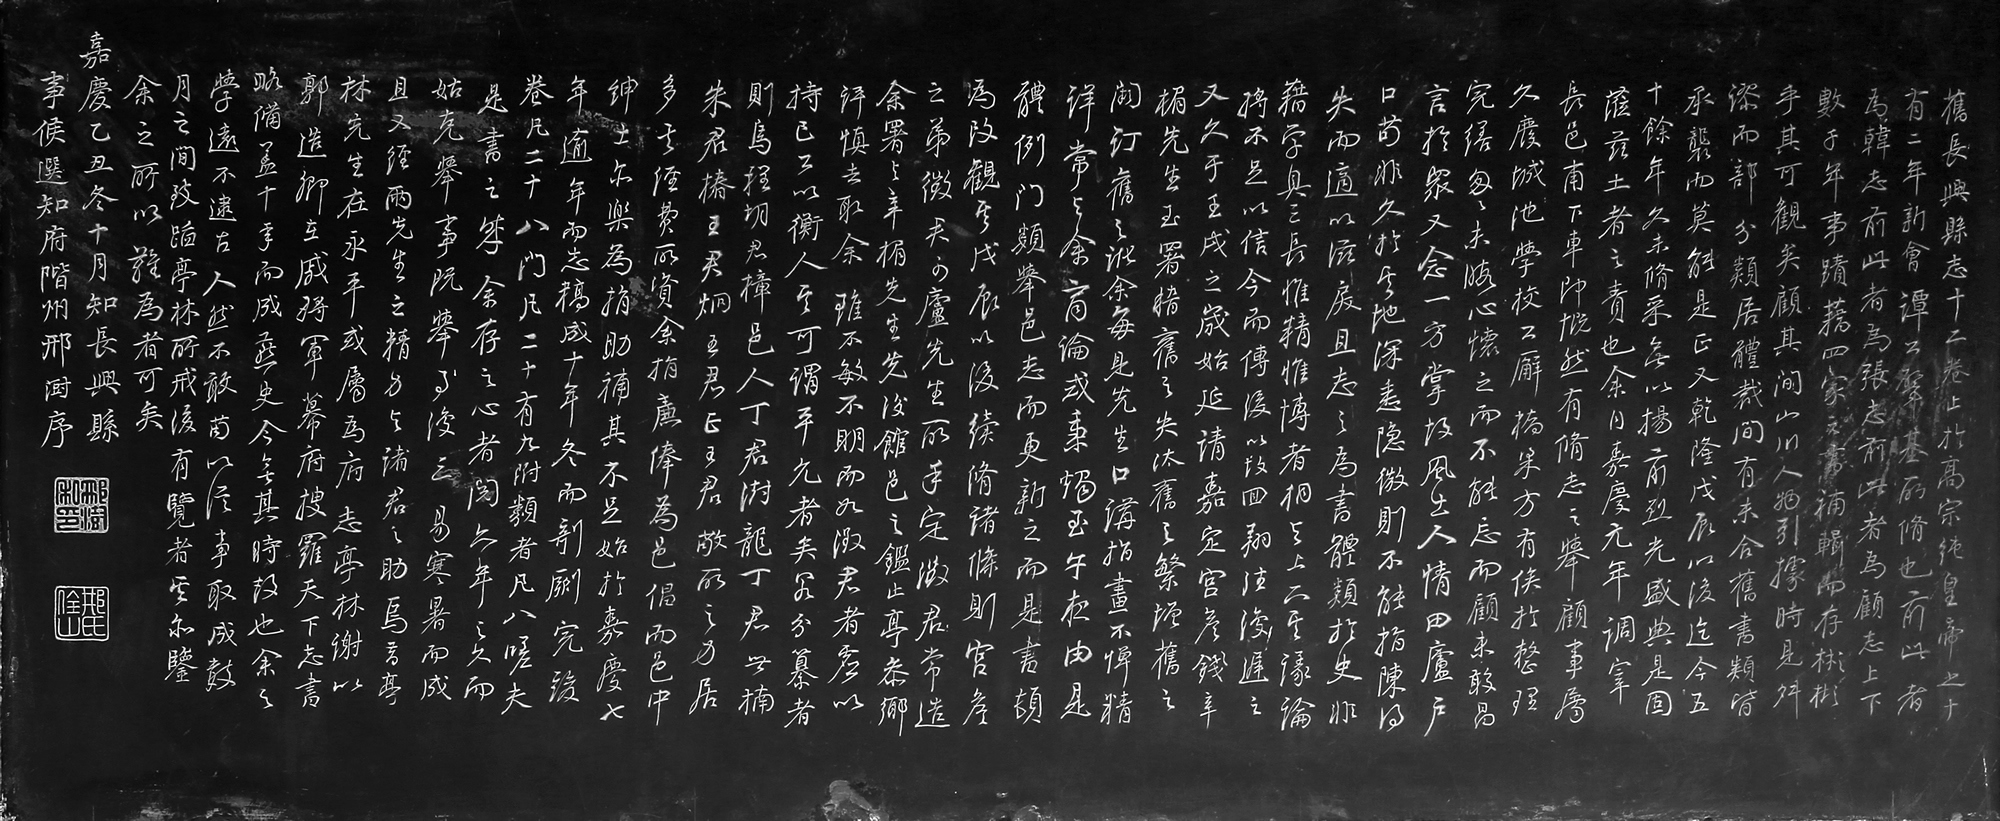 舊長興縣志十二卷止於高宗純皇帝之十
有二年新會譚公肇基所脩也前此者
為韓志前此者為張志前此者為顧志上下
數千年事蹟藉四家之書補輯而存彬彬
乎其可觀矣顧其間山川人物引據時見舛
漻而部分類居體裁間有未合舊書類皆
承襲而莫能是正又乾隆戊辰以後迄今五
十餘年久未脩采無以揚前烈光盛典是固
蒞茲土者之責也余自嘉慶元年調宰
長邑甫下車即慨然有脩志之舉顧事屬
久廢城池學校公廨橋梁方有俟於整理
完繕匆匆未暇心懷之而不能忘而顧未敢昌
言於眾又念一方掌故風土人情田廬戶
口苟非久於其地深悉隱微則不能指陳得
失而適以滋戾且志之為書體類於史非
藉學具三長惟精惟博者相與上下其議論
將不足以信今而傳後以故回翔往復遲之
又久于壬戌之歲始延請嘉定宮詹錢辛
楣先生至署賭舊之失汰舊之繁增舊之
闕訂舊之訛余每見先生口講指畫不憚精
詳常與余商論或秉燭至午夜由是
體例門類舉邑志而更新之而是書頓
為改觀其戊辰以後續脩諸條則宮詹
之弟徵君可廬先生所手定徵君常造
余署與辛楣先生先後館邑之鑑止亭參鄉
評慎去取余雖不敏不明而如徵君者壹以
持己公以衡人其可謂平允者矣若分纂者
則烏程邢君樟邑人丁君澍龍丁君芸楠
朱君椿王君炯王君正王君敞所之力居
多其經費所資余捐廉俸為邑倡而邑中
紳士亦樂為捐助補其不足始於嘉慶七
年逾年而志稿成十年冬而剞劂完竣
卷凡二十八門凡二十有九附類者凡八嗟夫
是書之成余存之心者閱六年之久而
姑克舉事既舉事後三易寒暑而成
且又經兩先生之精力與諸君之助焉昔亭
林先生在永平或屬為府志亭林謝以
郭造卿在戚將軍幕府搜羅天下志書
略備蓋十年而成燕史今無其時故也余之
學遠不逮古人然不敢苟以從事取成數
月之間致蹈亭林所戒後有覽者其亦鑒
余之所以難為者可矣
嘉慶乙丑冬十月知長興縣
事候選知府階州邢澍序
邢澍私印
邢氏佺山